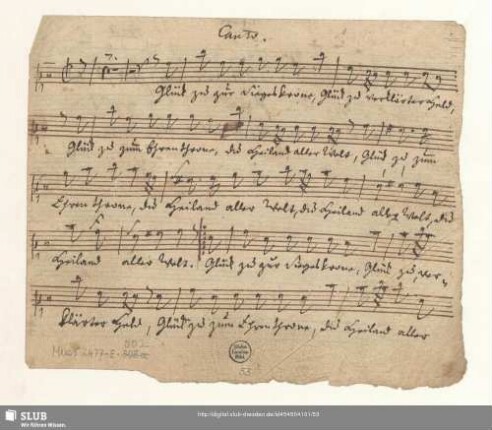 Canto.
Glück zu zur Siegeskrone, Glück zu verklärter Held,
Glück zu zum Ehrenthrone, du Heiland aller Welt, Glück zu, zum
Ehrenthrone, du Heiland aller Welt, du Heiland aller Welt, du
Heiland aller Welt. Glück zu zur Siegeskrone, Glück zu, ver-
klärter Held, Glück zu zum Ehrenthrone, du Heiland aller
53
SLUB
Wir führen Wissen.